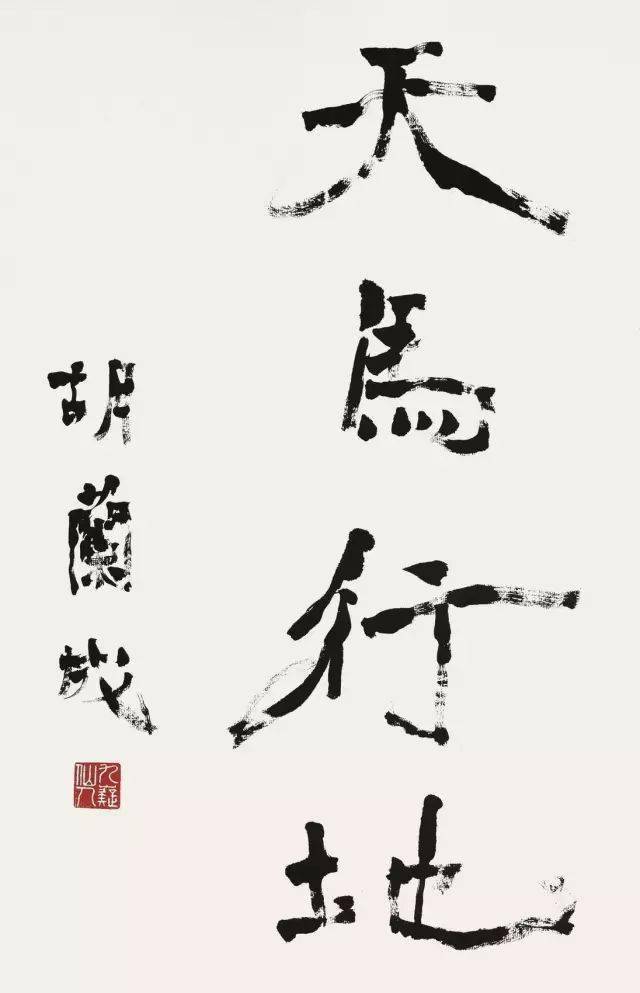 天馬行地
胡蘭成
九疑仙人